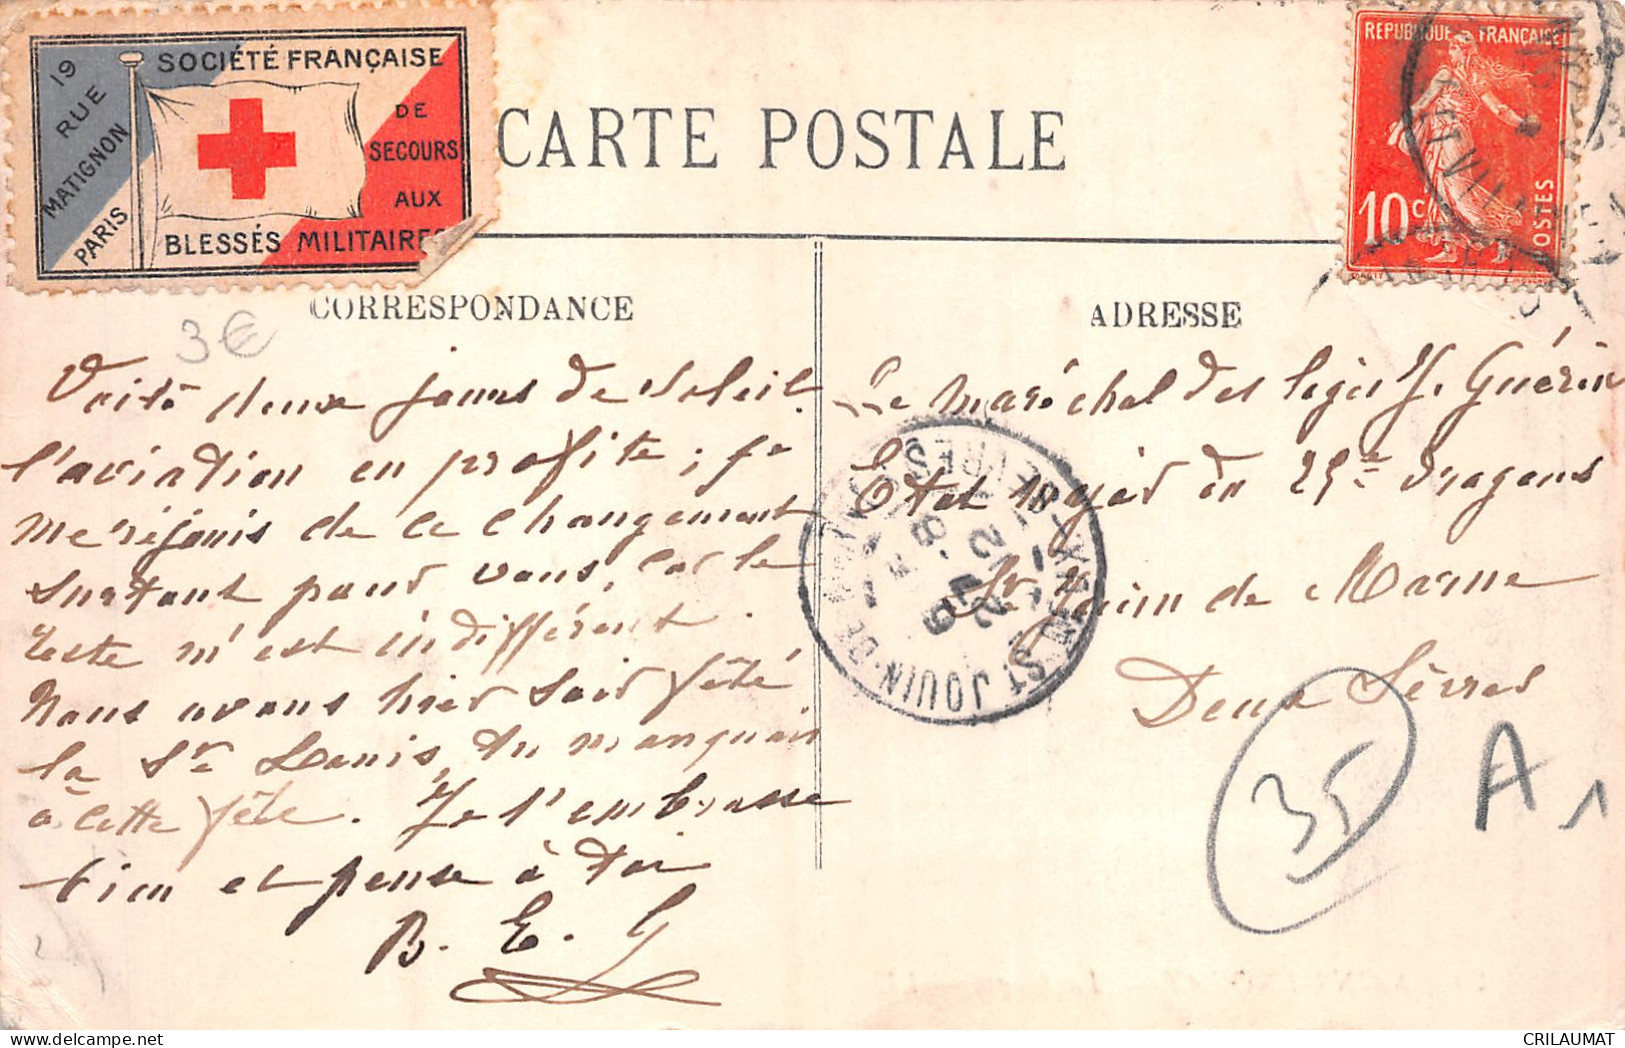 19
RUE
MATIGNON
PARIS
SOCIÉTÉ FRANÇAISE
DE
SECOURS
AUX
BLESSÉS MILITAIRES
CARTE POSTALE
REPUBLIQUE FRANÇAISE
10c
POSTES
CORRESPONDANCE
3€
Voilà deux jours de soleil.
l'aviation en profite ; je
me réjouis de ce changement
surtout pour vous, car le
reste m'est indifférent.
Nous avons hier soir fêté
la St Louis, tu manquais
à cette fête. Je t'embrasse
bien et pense à toi
B. E. G
ADRESSE
Le Maréchal des logis J. Guérin
Etat major du 25e Dragons
St Jouin de Marne
Deux Sèvres
ST JOUIN-DE-
SEVRES
35
A 1
CRILAUMAT